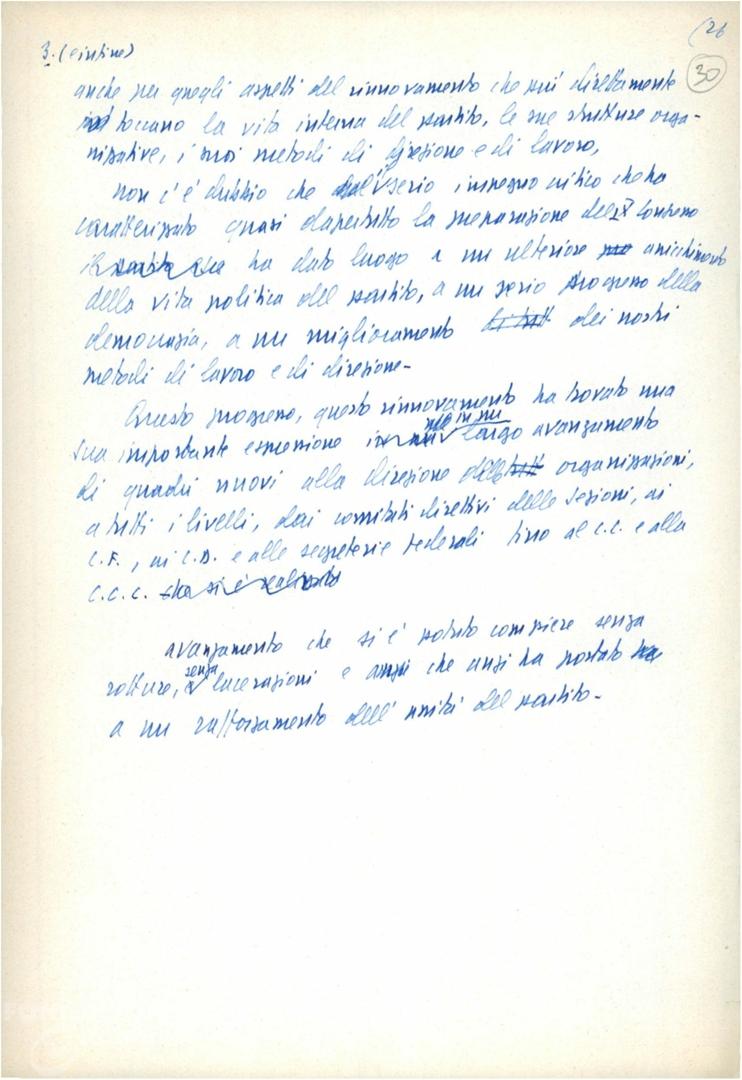 (26
30
3. (e infine)
anche per quegli aspetti del rinnovamento che più direttamente
toccano la vita interna del partito, le sue strutture orga-
nizzative, i suoi metodi di direzione e di lavoro,
non c'è dubbio che il serio impegno critico che ha
caratterizzato quasi dapertutto la preparazione del IX Congresso
il partito che ha dato luogo a un ulteriore arricchimento
della vita politica del partito, a un serio progresso della
democrazia, a un miglioramento di tutt dei nostri
metodi di lavoro e di direzione-
Questo progresso, questo rinnovamento ha trovato una
sua importante espressione in un largo avanzamento
di quadri nuovi alla direzione delle organizzazioni,
a tutti i livelli, dai comitati direttivi delle sezioni, ai
C.F., ai C.D. e alle segreterie federali fino al C.C. e alla
C.C.C. che si è realizzato
avanzamento che si è potuto compiere senza
rotture, senza lacerazioni e anzi che anzi ha portato
a un rafforzamento dell'unità del partito-